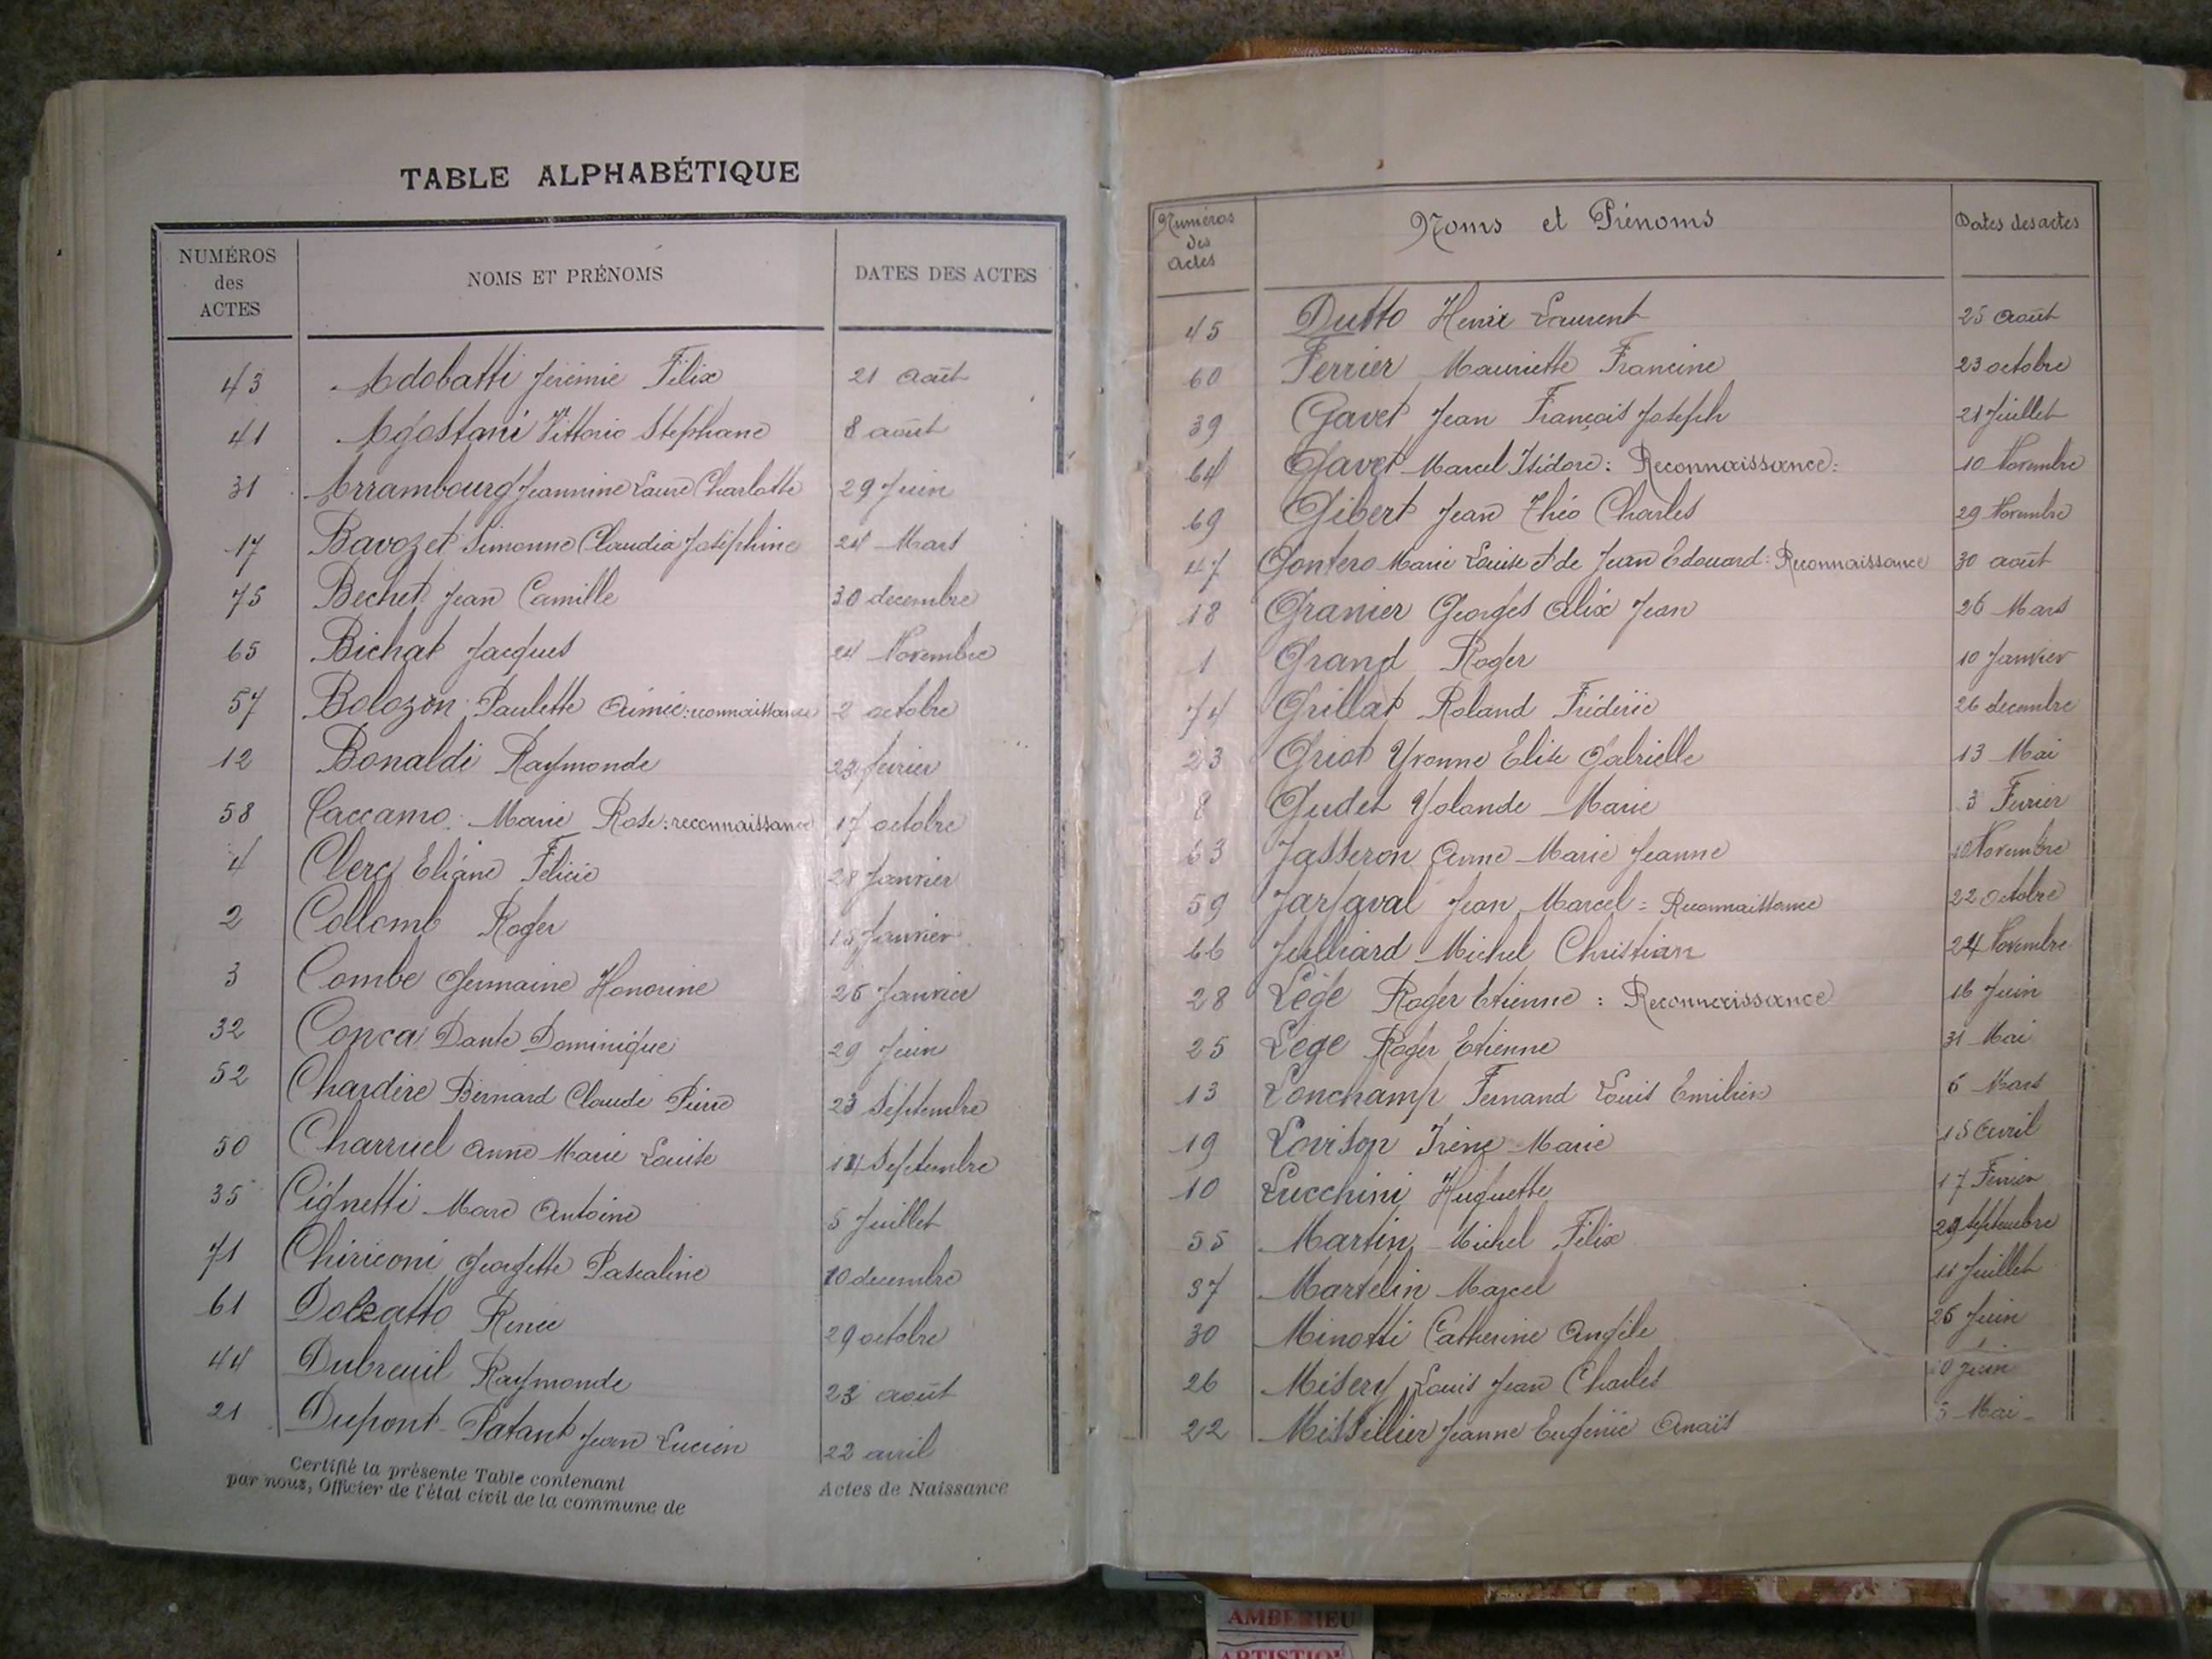 TABLE ALPHABÉTIQUE
NUMÉROS des ACTES NOMS ET PRÉNOMS DATES DES ACTES
43 Adobatti Jérémie Félix 21 août
41 Agostani Vittorio Stéphane 8 août
31 Arrambourg Jeannine Laure Charlotte 29 Juin
17 Bavozet Simonne Claudia Joséphine 24 Mars
75 Bechet Jean Camille 30 decembre
65 Bichat Jacques 24 Novembre
57 Bolozon Paulette Aimée: reconnaissance 2 octobre
12 Bonaldi Raymonde 23 février
58 Caccamo Marie Rose: reconnaissance 17 octobre
4 Clerc Eliane Félicie 28 Janvier
2 Collomb Roger 15 Janvier
3 Combe Germaine Honorine 26 Janvier
32 Conca Dante Dominique 29 Juin
52 Chardère Bernard Claude Pierre 23 Septembre
50 Charruel Anne Marie Louise 14 Septembre
35 Cignetti Marc Antoine 5 Juillet
71 Chiriconi Georgette Pascaline 10 decembre
61 Dolzatto Renée 29 octobre
44 Dubreuil Raymonde 23 août
21 Dupont-Patant Jean Lucien 22 avril
Certifié la présente Table contenant Actes de Naissance
par nous, Officier de l'état civil de la commune de
Numéros des Actes Noms et Prénoms Dates des actes
45 Dutto Henri Laurent 25 août
60 Ferrier Mauricette Francine 23 octobre
39 Gavet Jean François Joseph 21 Juillet
64 Gavet Marcel Isidore: Reconnaissance: 10 Novembre
69 Gibert Jean Théo Charles 29 Novembre
47 Gontero Marie Louise et de Jean Edouard: Reconnaissance 30 août
18 Granier Georges Alix Jean 26 Mars
1 Grand Roger 10 Janvier
74 Grillat Roland Frédéric 26 decembre
23 Griot Yvonne Elise Gabrielle 13 Mai
8 Gudet Yolande Marie 3 Fevrier
63 Jasseron Anne Marie Jeanne 10 Novembre
59 Jarjaval Jean Marcel = Reconnaissance 22 Octobre
66 Julliard Michel Christian 24 Novembre
28 Lège Roger Etienne : Reconnaissance 16 Juin
25 Lège Roger Etienne 31 Mai
13 Lonchamp Fernand Louis Emilien 6 Mars
19 Lovison Irène Marie 15 Avril
10 Lucchini Huguette 17 Fevrier
55 Martin Michel Félix 29 Septembre
37 Martelin Marcel 11 Juillet
30 Minotti Catherine Angèle 26 Juin
26 Misery Louis Jean Charles Juin
22 Missillier Jeanne Eugénie Anaïs 5 Mai
AMBERIEU